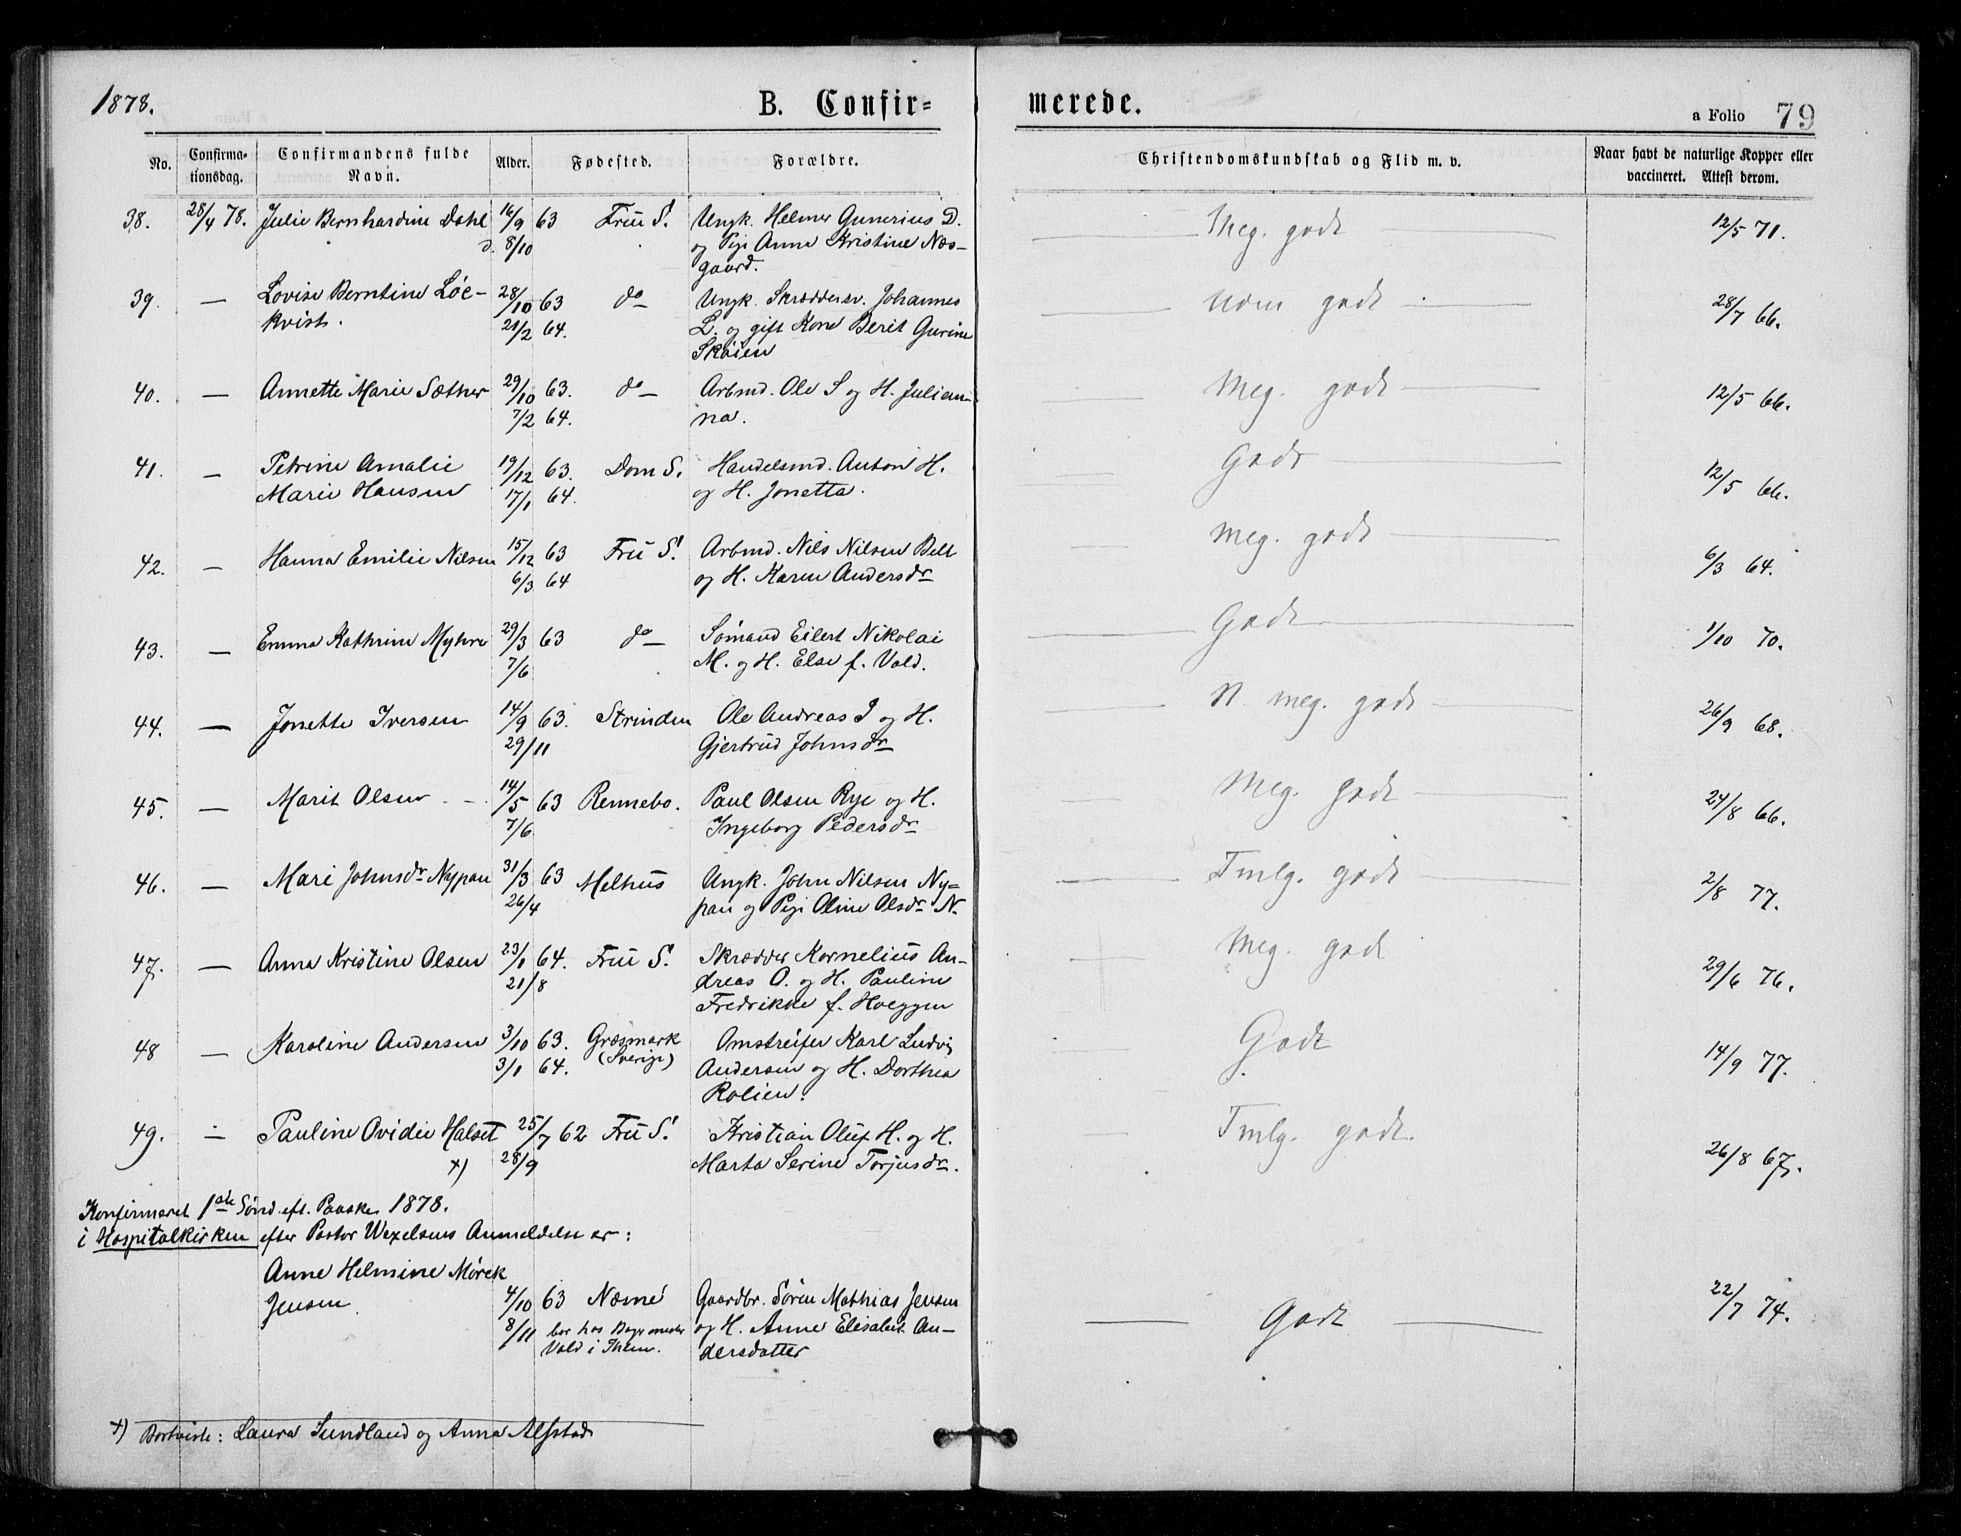 1878.
B. Confir=
merede.
a Folio 79
No.
Confirma-
tionsdag.
Confirmandens fulde
Navn.
Alder.
Fødested.
Forældre.
Christendomskundskab og Flid m. v.
Naar havt de naturlige Kopper eller
vaccineret. Attest derom.
38. 28/4 78. Julie Bernhardine Dahl 16/9 63 Frue S. Ungk. Helmer Gunerius D. Meg. godt 12/5 71.
d. 8/10 og Pige Anna Kristine Næs-
gaard.
39. — Lovise Berntine Löe- 28/10 63 do— Ungk. Skrædersv. Johannes godt 28/7 66.
kvist. 21/2 64. L. og gift Kone Berit Gurine
Skøien
40. — Annette Marie Sæther 29/10 63. do— Arbmd. Ole S og H. Julian- Meg. godt 12/5 66.
7/2 64. na.
41. — Petrine Amalie 19/12 63. Dom S. Handelsmd. Anton H. Godt 12/5 66.
Marie Hansen 17/1 64. og H. Jonetta.
42. — Hanna Emilie Nilsen 15/12 63 Frue S. Arbmd. Nils Nilsen Belt meg. godt 6/3 64.
6/3 64 og H. Karen Andersdr
43. — Emma Kathrine Myhre 29/3 63 do— Sömand Eilert Nikolai Godt 1/10 70.
7/6 M. og H. Else f. Vold.
44. — Jonette Iversen 14/9 63. Strinden Ole Andreas I og H. N. meg. godt 26/9 68.
29/11 Gjertrud Johnsdr
45. — Marit Olsen 14/5 63 Rennebo. Paul Olsen Rye og H. Meg. godt 24/8 66.
7/6 Ingeborg Pedersdr
46. — Mari Johnsdr Nypan 31/3 63 Melhus Ungk. John Nilsen Ny= Tmlg. godt 2/8 77.
26/4 pan og Pige Oline Olsdr N.
47. — Anna Kristine Olsen 23/1 64. Frue S. Skrædder Kornelius An- Meg. godt 29/6 76.
21/8 dreas O. og H. Pauline
Fredrikke f. Hoeggen
48 — Karoline Andersen 3/10 63. Græsmark Omstreifer Karl Ludvig Godt 14/9 77.
3/1 64. (Sverige) Andersen og H. Dorthea
Rolien.
49. — Pauline Ovidie Halset 25/7 62 Frue S. Kristian Oluf H. og H. Tmlg. godt. 26/8 67.
+) 28/9 Marta Serine Torjusdr.
Konfirmeret 1ste Sönd. eft. Paaske 1878.
i Hospitalkirken efter Pastor Wexelsens Anmeldelse er:
Anne Helmine Mörek
Jensen 4/10 63 Næsne Gaardbr. Sören Mathias Jensen Godt 22/7 74.
8/11 bor hos og H. Anne Elisabet An-
Vold i Thlem. dersdatter
+) Bortviste: Laura Sundland og Anna Alfstad